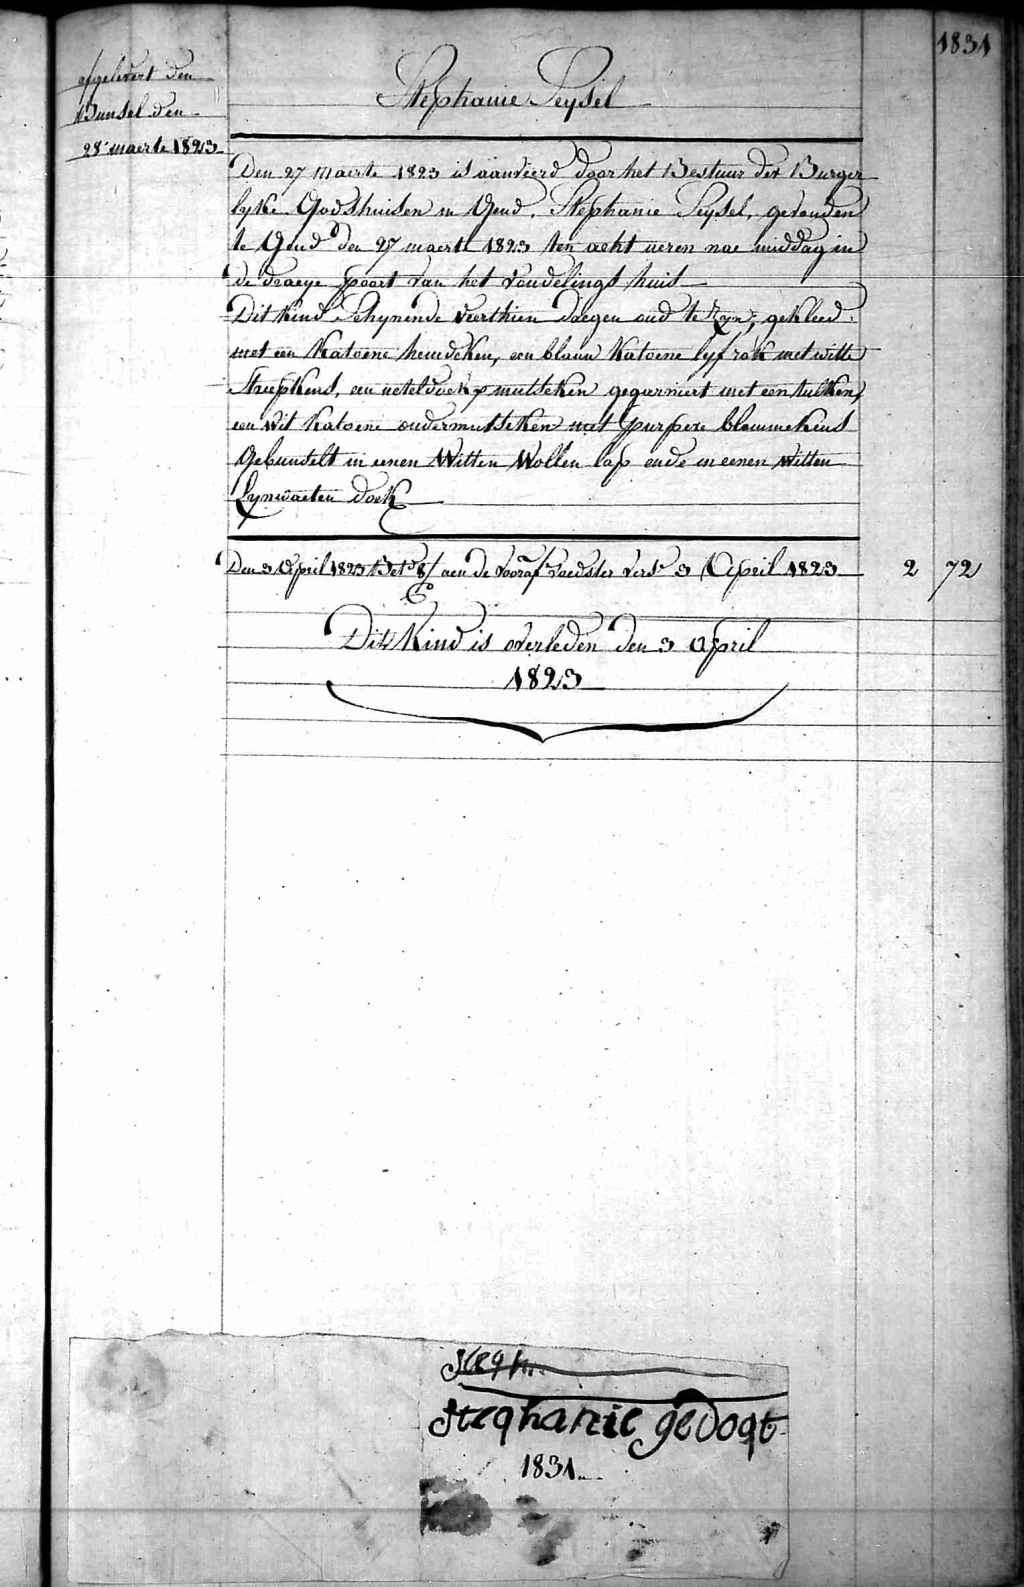 1831
afgelevert den
Bunsel den
28 maerte 1823
Stephanie Seysel
Den 27 maerte 1823 is aanveerd door het Bestuur der Burger
lyke Godshuisen in Gend, Stephanie Seysel, gevonden
te Gend den 27 maerte 1823 ten acht ueren nae middag in
de draeye poort van het vondelings huis
Dit kind Schynende veerthien daegen oud te zyn, gekleed
met een katoene hemdeken, een blauw katoene lyfrok met witte
streepkens, een neteldoek mutseken gegarniert met een tulken,
een wit katoene ondermutseken met purpere blommekens
Gebundelt in eenen Witten Wollen lap ende in eenen Witten
Lynwaeten doek
Den 3 April 1823 aen de voedster 3 April 1823 2 72
Dit kind is overleden den 3 April
1823
Steqh
Steqhanie gedoqt
1831